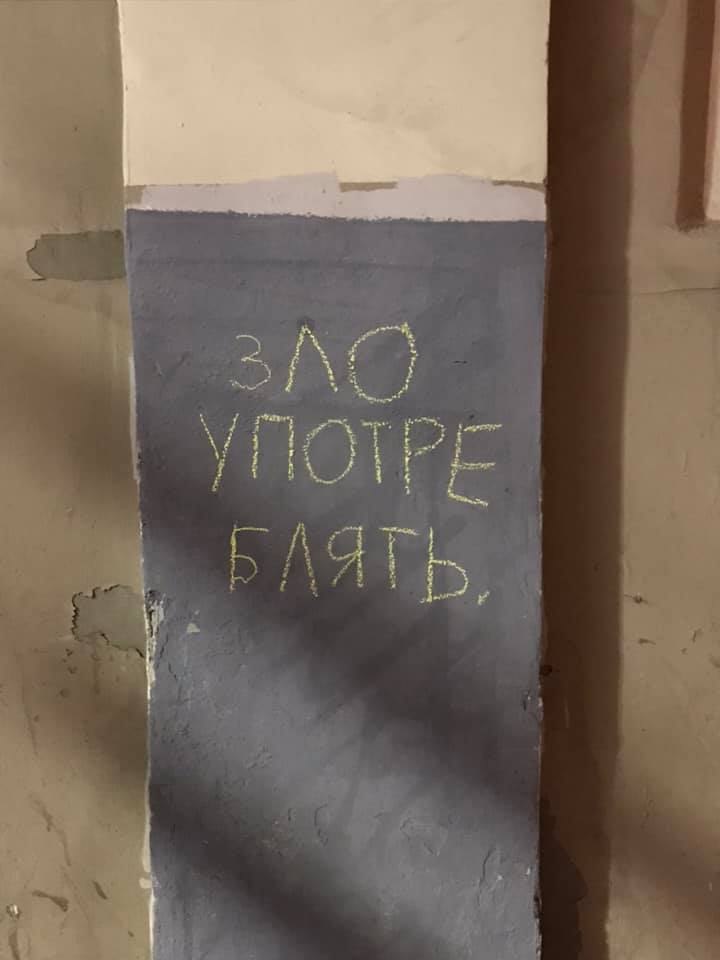 ЗЛО
УПОТРЕ
БЛЯТЬ.